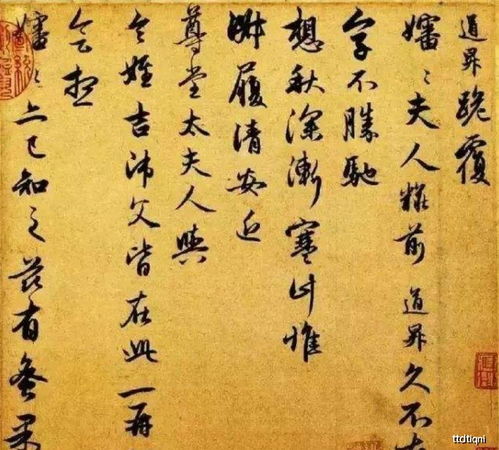 道昇跪覆
嬸〻夫人粧前道昇久不奉
字不勝馳
想秋深漸寒計惟
淑履清安近
尊堂太夫人與
令姪吉師父皆在此一再
會想
嬸〻亦已知之茲有蜜果
ttdtiqni